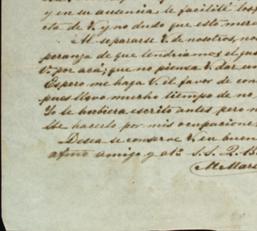 y en su ausencia se facilite
cio de V. y no dudo que esto
Al separarse V. de nosotros, nos
peranza de que tendriamos el gus
V. por acá; que no piensa V. dar un
Espero me haga V. el favor de con
pues llevo mucho tiempo de no
Yo le hubiera escrito antes pero n
hacerlo por mis ocupacione
Desea se conserve V. en buen
afmo amigo y S. S. Q. B.
M. Mar